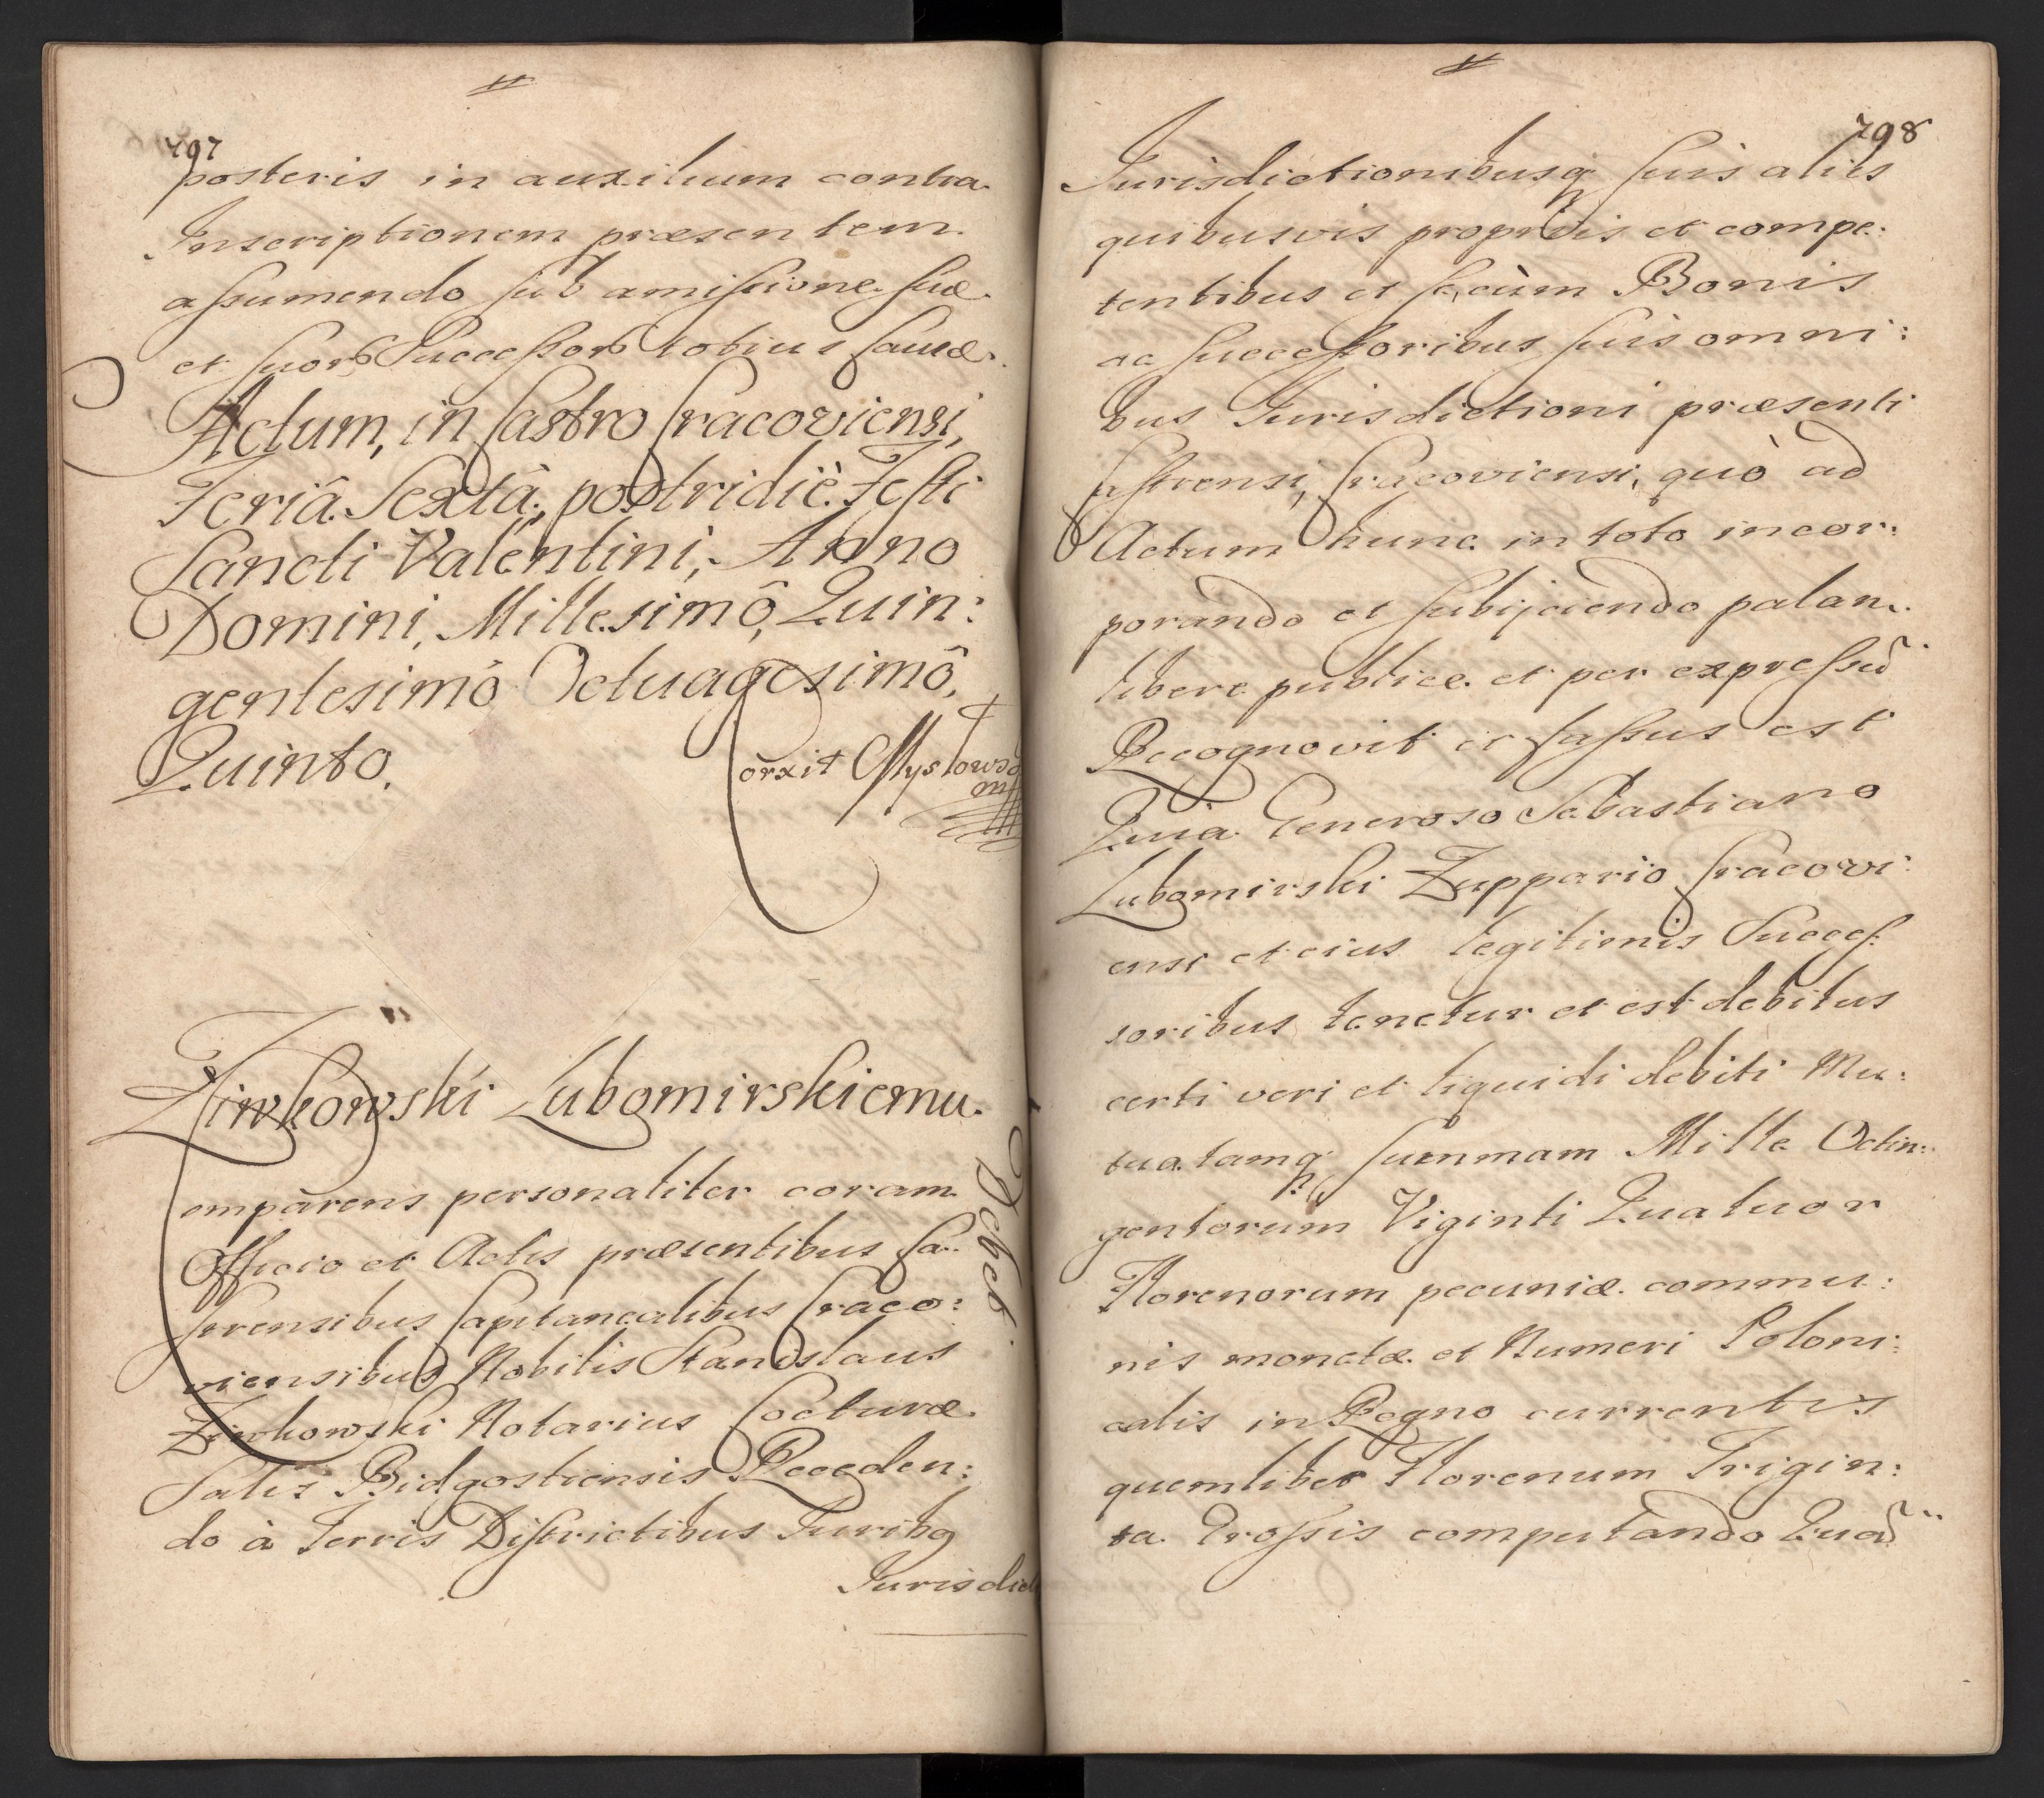 797
posteris in auxilium contra
Inscriptionem præsentem
assumendo sub amissione suæ
et suorū Successorū totius causæ.
Actum, in Castro Cracoviensi,
Feriâ Sextâ, postridiè Festi
Sancti Valentini, Anno
Domini, Millesimô, Quin:
gentesimô Octuagesimô,
Quinto.
Corxit Mysłows
mp
Ziwkowski Lubomirskiemu.
Debet.
Comparens personaliter coram
Officio et Actis præsentibus Ca:
strensibus Capitanealibus Craco:
viensibus Nobilis Stanislaus
Ziwkowski Notarius Cocturæ
Salis Bidgostiensis Receden:
do à Terris Districtibus Juribq
Jurisdict
798
Jurisdictionibusq suis aliis
quibusvis propriis et compe:
tentibus et se cùm Bonis
ac successoribus suis omni:
bus Jurisdictioni præsenti
Castrensi, Cracoviensi, quò ad
Actum hunc in toto incor:
porando et subijciendo palam
libere publice et per expressū
Recognovit et fassus est
Quia Generoso Sebastiano
Lubomirski Zuppario Cracovi:
ensi et eius legitimis Succes:
soribus tenetur et est debitus
certi veri et liquidi debiti Mu:
tuatamq summam Mille Octin:
gentorum Viginti Quatuor
Florenorum pecuniæ commu:
nis monetæ et Numeri Poloni:
calis in Regno currentis
quemlibet Florenum Trigin:
ta Grossis computando Quā